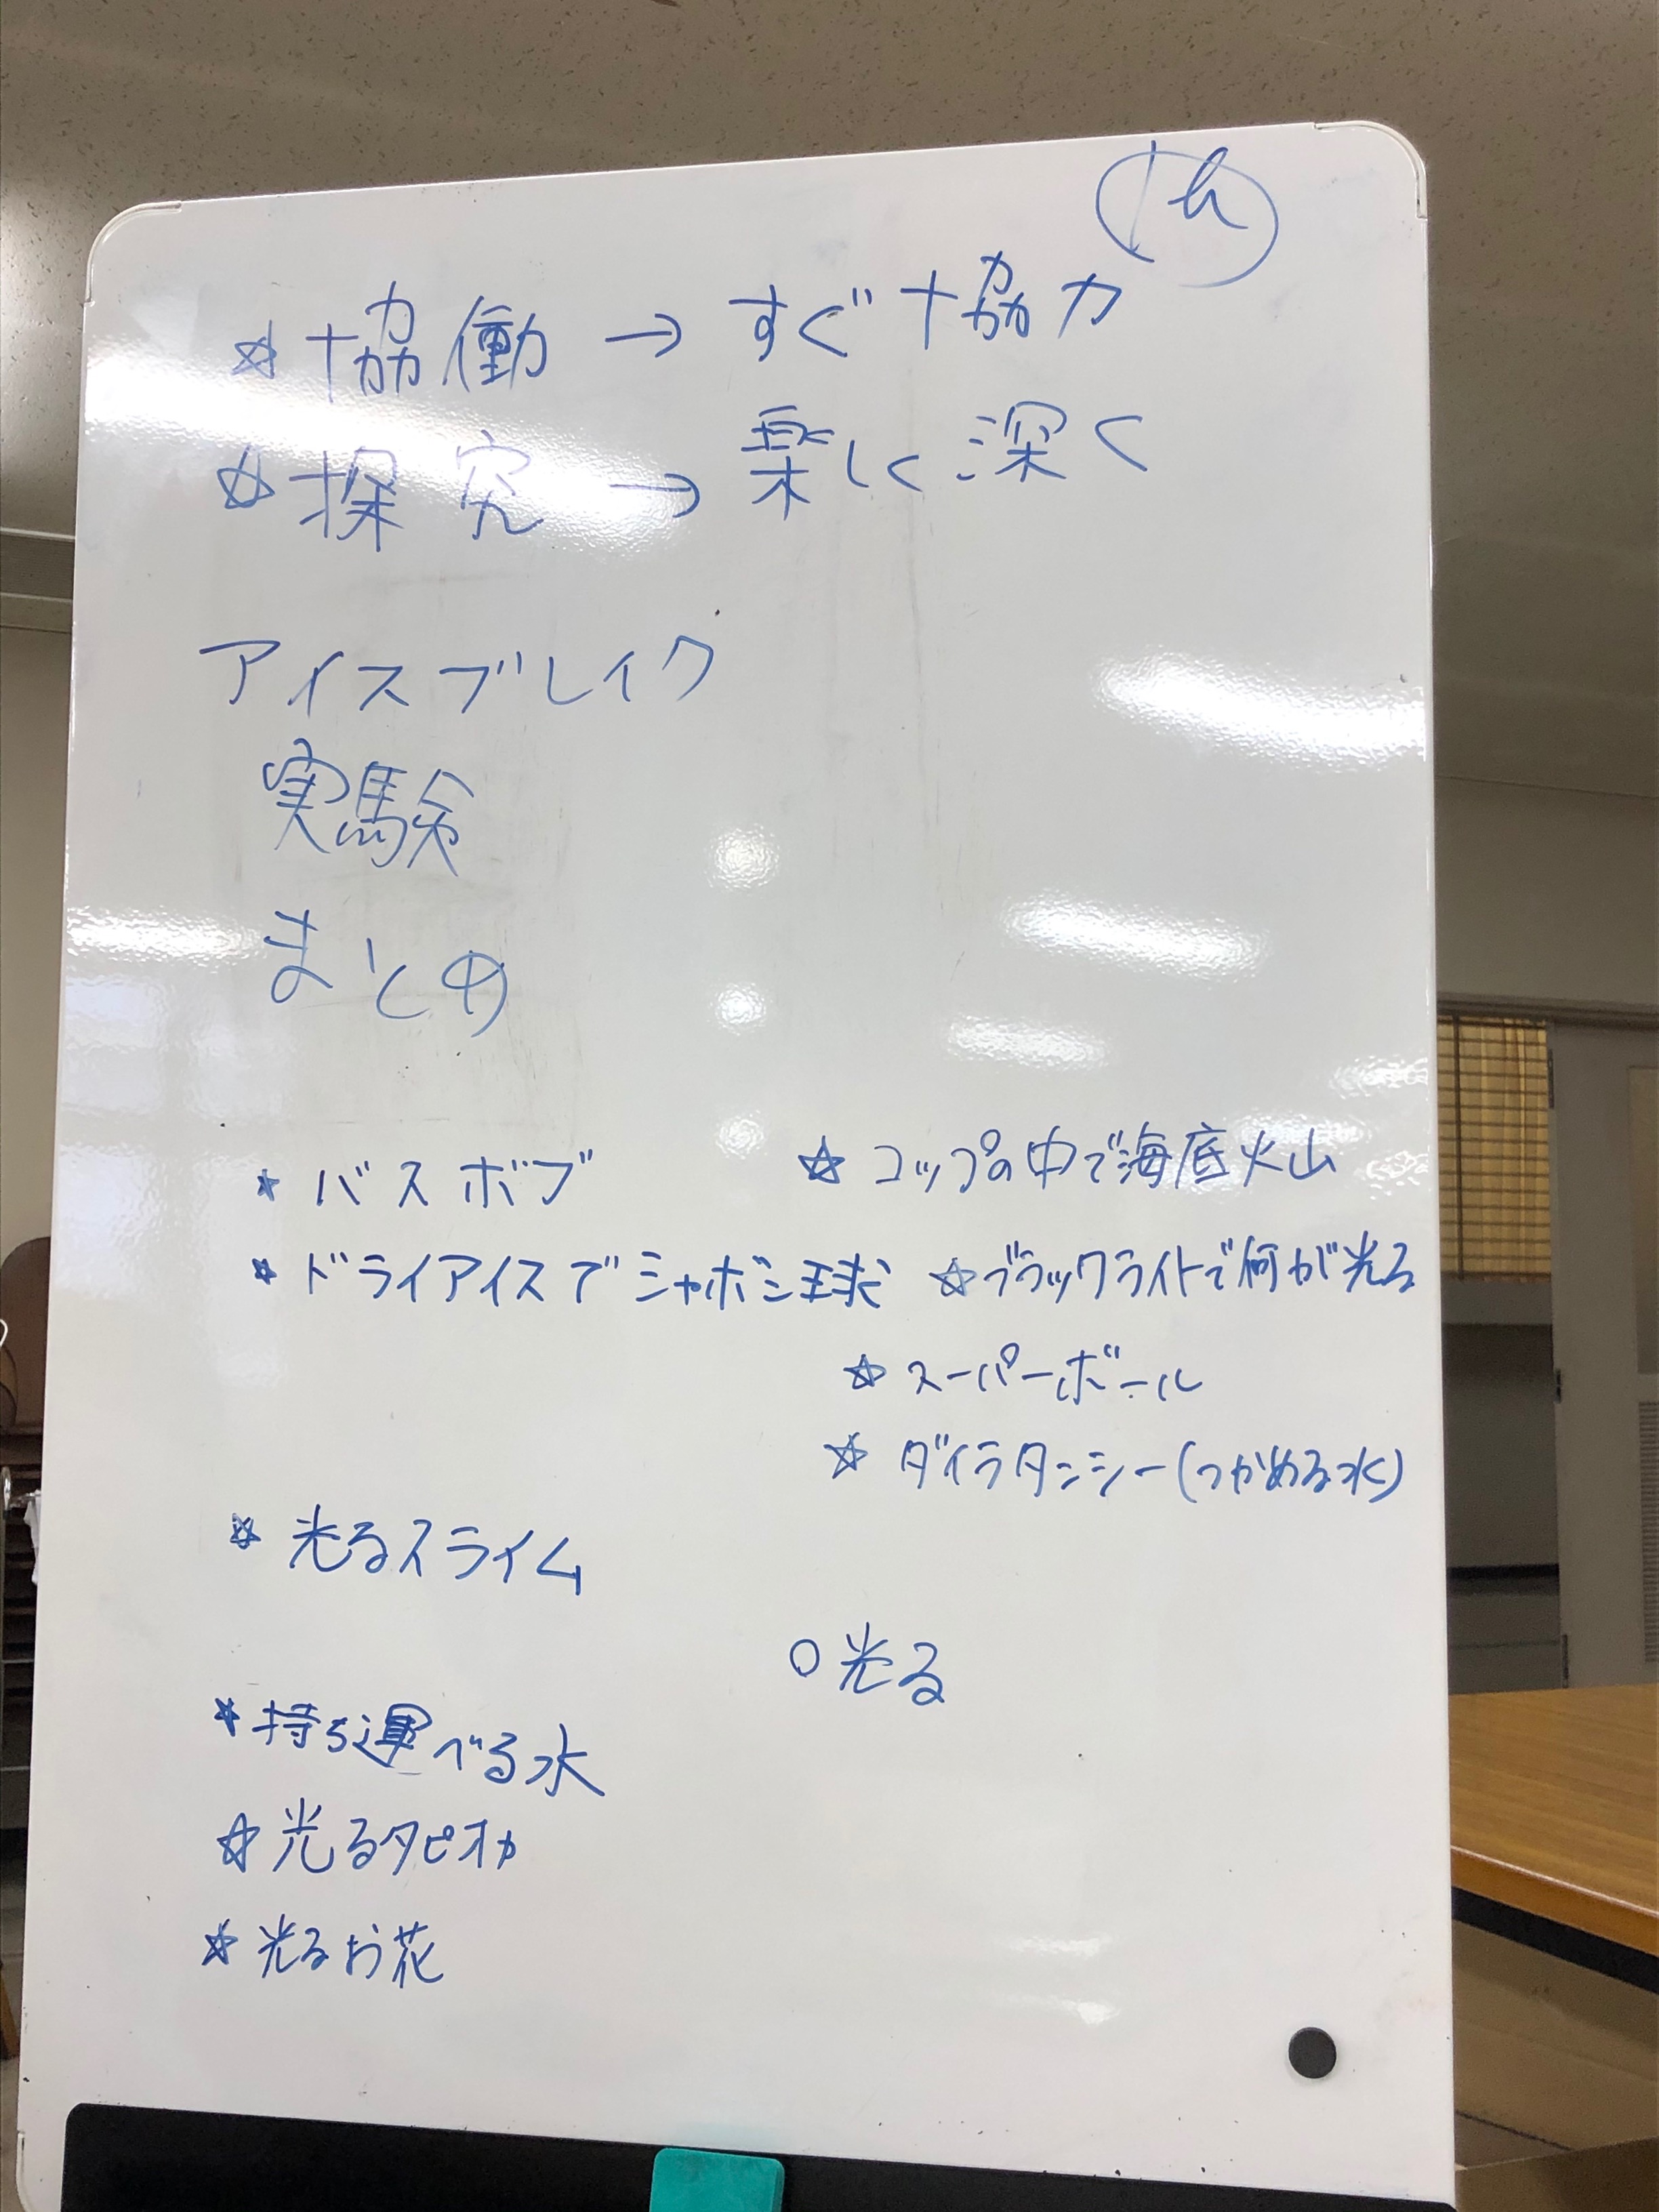 1h
☆協働→すぐ協力
☆探究→楽しく深く
アイスブレイク
実験
まとめ
☆バスボブ
☆ドライアイスでシャボン玉球
☆光るスライム
☆持ち運べる水
☆光るタピオカ
☆光るお花
☆コップの中で海底火山
☆ブラックライトで何が光る
☆スーパーボール
☆ダイラタンシー(つかめる水)
○光る